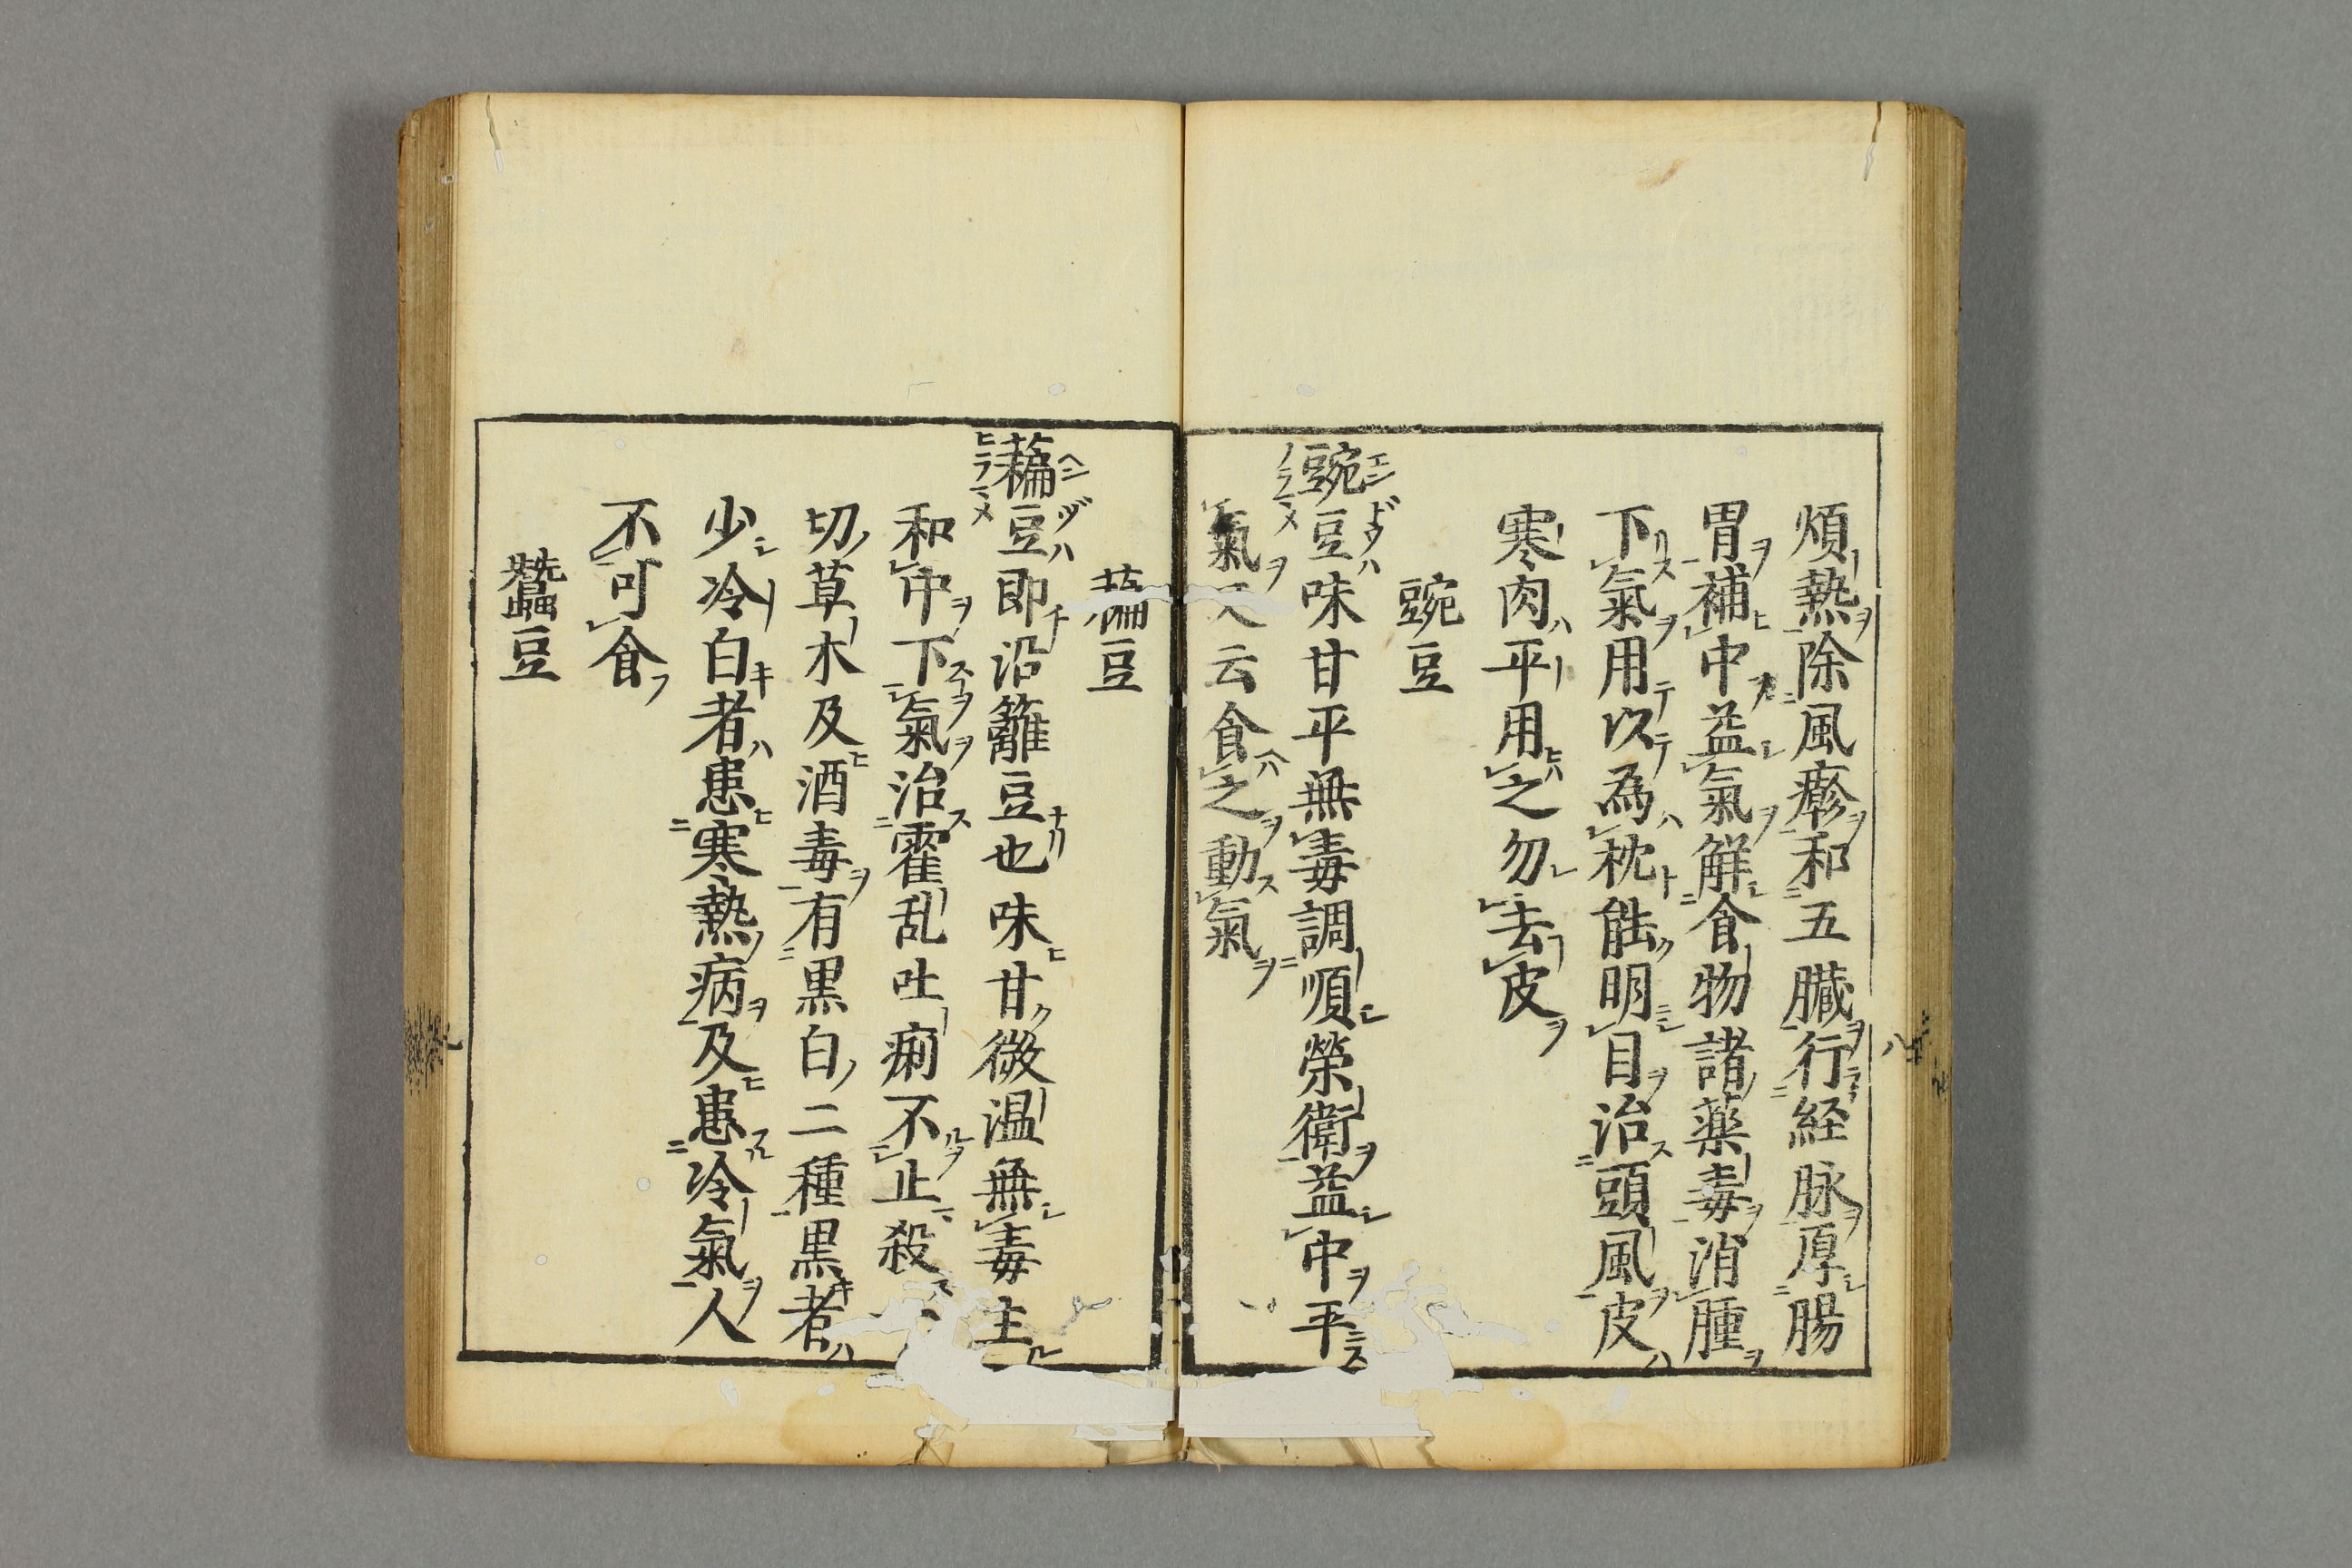 煩熱除風瘮和五臓行経脉厚腸
胃補中益氣解食物諸薬毒消腫
下氣用以為枕能明目治頭風皮
寒肉平用之勿去皮
豌豆
豌豆味甘平無毒調順榮衛益中平
氣又云食之動氣
藊豆
藊豆即沿籬豆也味甘微温無毒主
和中下氣治霍乱吐痢不止殺一
切草木及酒毒有黒白二種黒者
少冷白者患寒熱病及患冷氣人
不可食
蠶豆